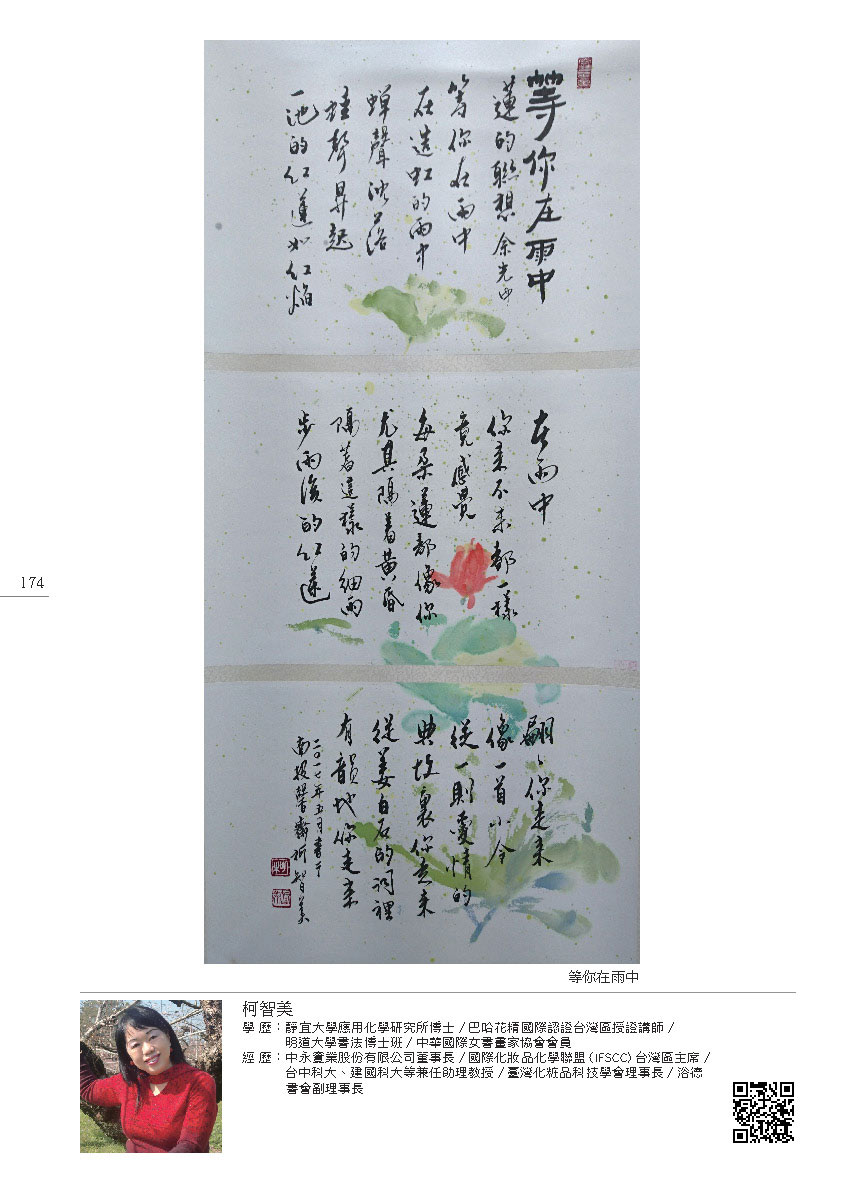 等你在雨中
蓮的聯想 余光中
等你在雨中
在造虹的雨中
蟬聲沈落
蛙聲昇起
一池的紅蓮如紅焰
在雨中
你来不来都一樣
竟感覺
每朵蓮都像你
尤其隔着黃昏
隔著這樣的細雨
步雨後的紅蓮
翩〻你走来
像一首小令
從一則愛情的
典故裏你走来
從姜白石的詞裡
有韻地你走来
二〇一七年五月書于
南投馨齋柯智美
174
等你在雨中
柯智美
學 歷：靜宜大學應用化學研究所博士 / 巴哈花精國際認證台灣區授證講師 /
明道大學書法博士班 / 中華國際女書畫家協會會員
經 歷：中永實業股份有限公司董事長 / 國際化妝品化學聯盟 (IFSCC) 台灣區主席 /
台中科大、建國科大等兼任助理教授 / 臺灣化粧品科技學會理事長 / 浴德
書會副理事長